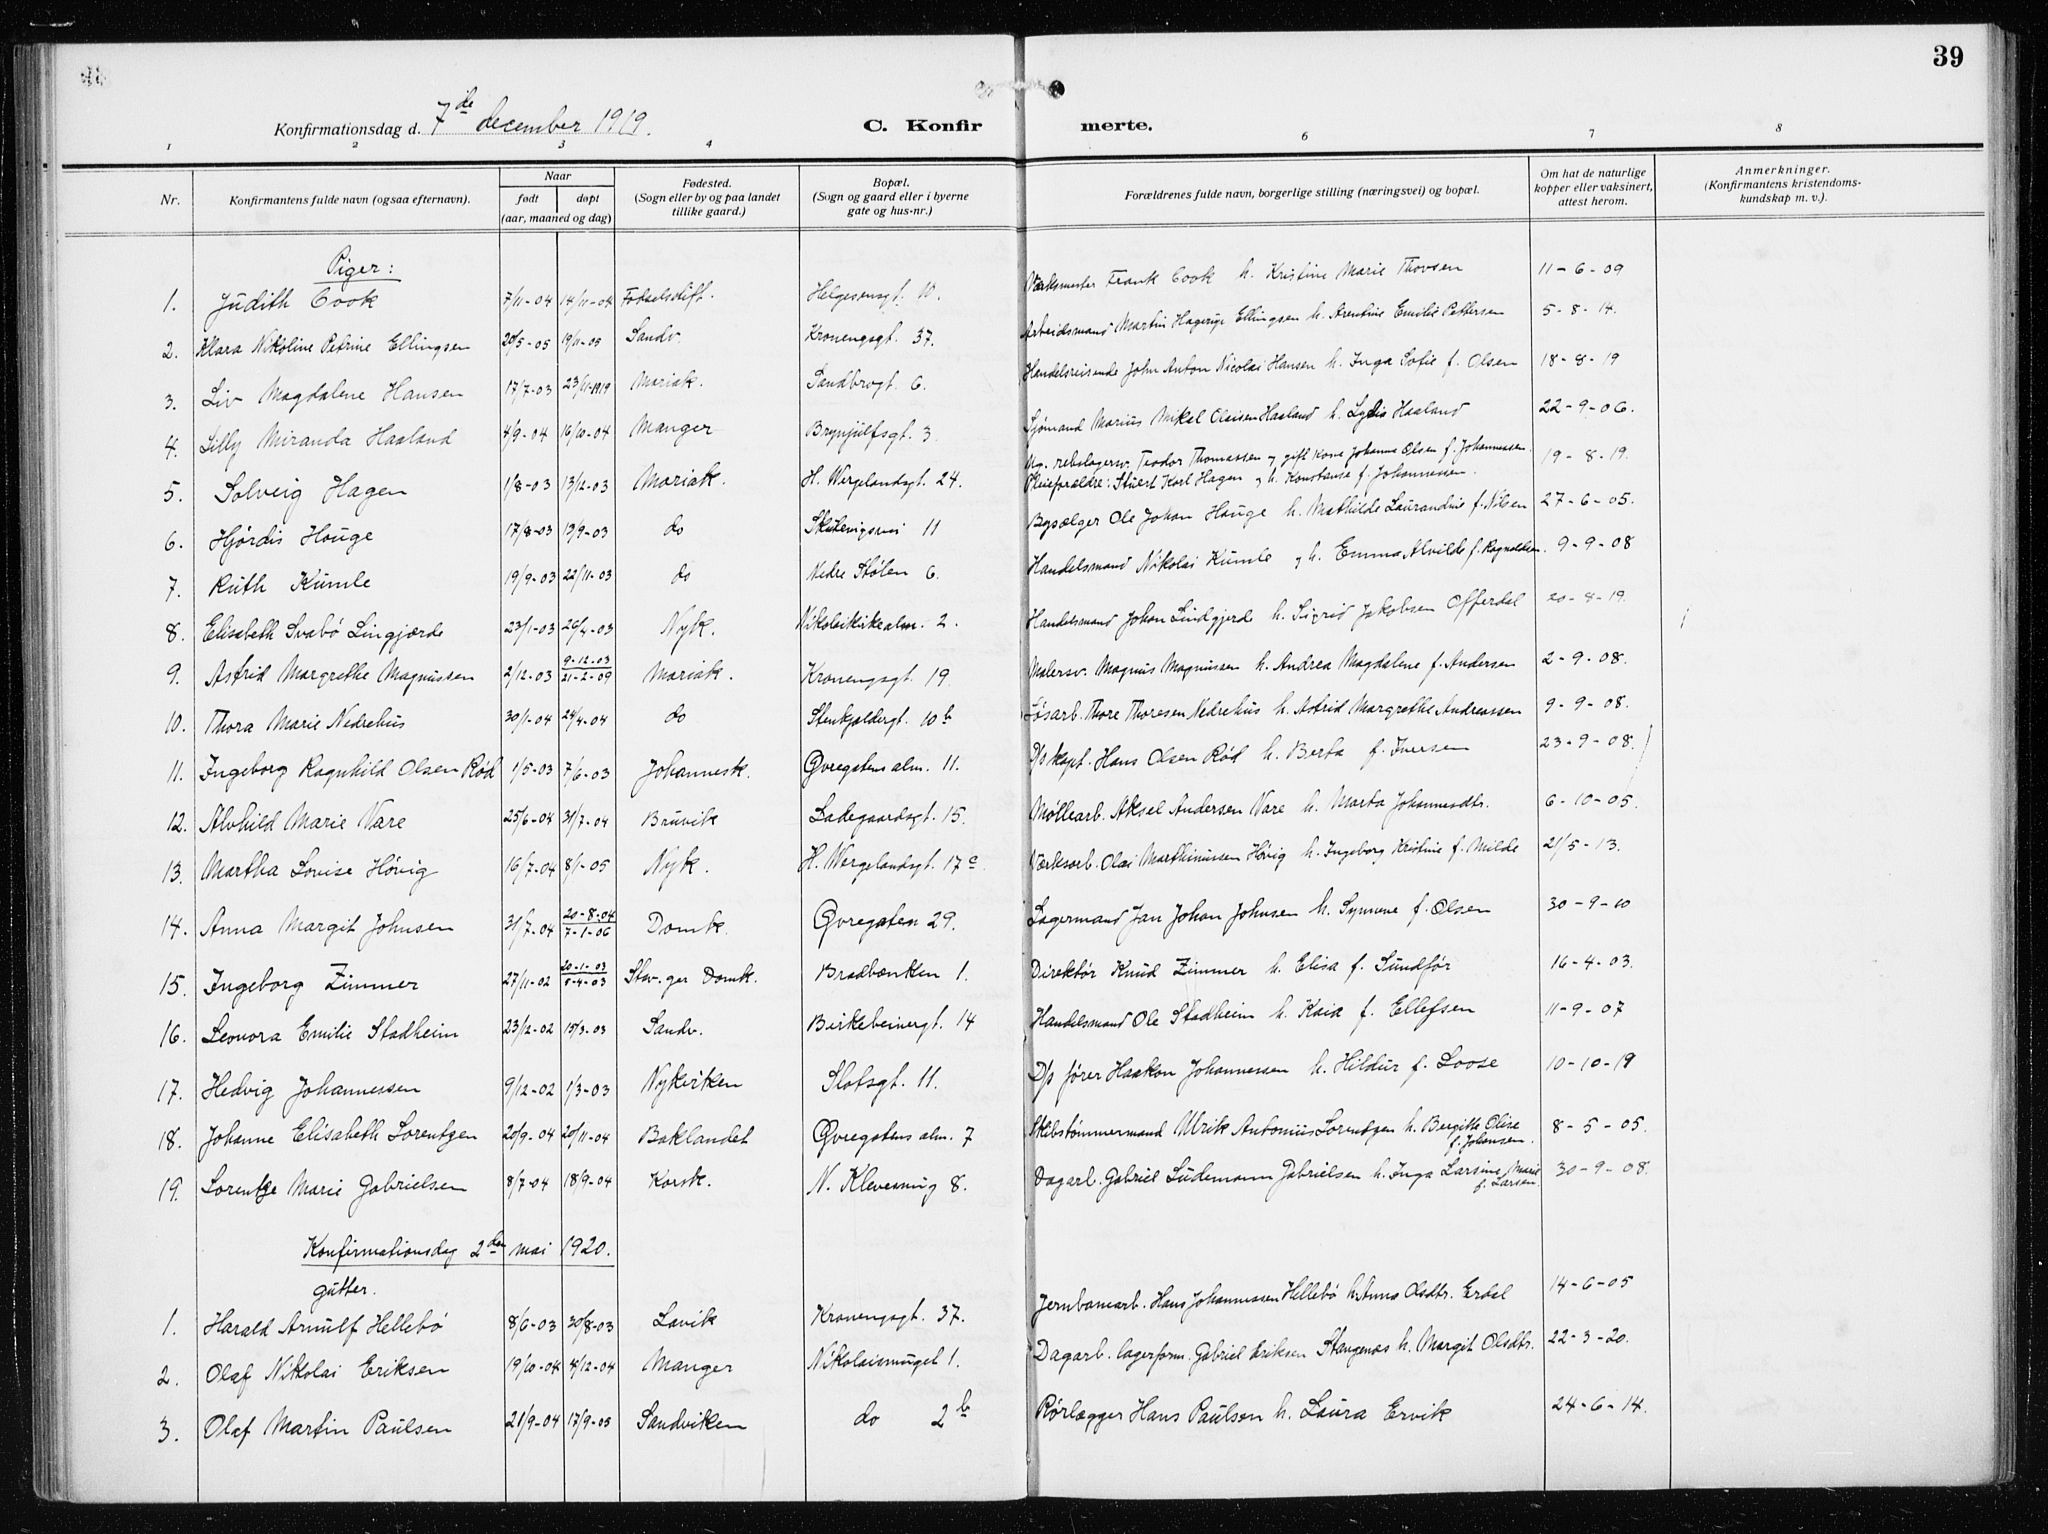 39
Konfirmationsdag d. 7de december 1919.
C. Konfirmerte.
1 2 3 4 6 7 8
Nr.
Konfirmantens fulde navn (ogsaa efternavn).
Naar
født døpt
(aar, maaned og dag)
Fødested.
(Sogn eller by og paa landet
tillike gaard.)
Bopæl.
(Sogn og gaard eller i byerne
gate og hus-nr.)
Forældrenes fulde navn, borgerlige stilling (næringsvei) og bopæl.
Om hat de naturlige
kopper eller vaksinert,
attest herom.
Anmerkninger.
(Konfirmantens kristendoms-
kundskap m. v.).
Piger:
1. Judith Cook 7/11-04 14/11-04 Fødselsstift. Helgesensgt. 10. Værksmester Frank Cook h. Kristine Marie Thovsen 11-6-09
2. Klara Nikoline Petrine Ellingsen 20/5-05 19/11-05 Sandv. Kronengsgt. 37. Arbeidsmand Martin Hagerup Ellingsen h. Arentine Emilie Pettersen 5-8-14.
3. Liv Magdalene Hansen 17/7-03 23/11-1919 Mariak. Sandbrogt. 6. Handelsreisende John Anton Nicolai Hansen h. Inga Sofie f. Olsen 18-8-19
4. Lilly Miranda Haaland 4/9-04 16/10-04 Manger Brynjulfsgt. 3. Sjømand Marius Mikal Olaisen Haaland h. Lydia Haaland 22-9-06.
5. Solveig Hagen 1/8-03 13/12-03 Mariak. H. Wergelandsgt. 24. Ug. rebslagersv. Teodor Thomassen og gift kone Johanna Olsen f. Johannessen. 19-8-19.
Pleieforældre: Stuert Karl Hagen og h. Konstanse f. Johannessen.
6. Hjørdis Houge 17/8-03 13/9-03 do Skutevigsvei 11 Bysælger Ole Johan Houge h. Mathilde Laurandine f. Nilsen 27-6-05.
7. Ruth Kumle 19/9-03 22/11-03 do Nedre Stølen 6. Handelsmand Nikolai Kumle og h. Emma Alvilde f. Ragnaldsen. 9-9-08
8. Elisabeth Svabø Lingjærde 23/1-03 26/4-03 Nyk. Nikolaikirkealm. 2. Handelsmand Johan Lindgjerde h. Sigrid Jakobsen Offerdal 20-8-19.
9. Astrid Margrethe Magnussen 2/12-03 9-12-03 21-2-09 Mariak. Kronengsgt. 19. Malersv. Magnus Magnussen h. Andrea Magdalene f. Andersen 2-9-08.
10. Thora Marie Nedrehus 30/1-04 24/4-04 do Stenkjeldergt. 10b Løsarb. Thore Thoresen Nedrehus h. Astrid Margrethe Andreassen 9-9-08.
11. Ingeborg Ragnhild Olsen Rød 1/5-03 7/6-03 Johannesk. Øvregatens alm. 11. D/s kapt. Hans Olsen Rød h. Berta f. Iversen 23-9-08.
12. Alvhild Marie Vare 25/6-04 31/7-04 Bruvik Ladegaardsgt. 15. Møllearb. Aksel Andersen Vare h. Marta Johannesdtr. 6-10-05.
13. Martha Lovise Høvig 16/7-04 8/1-05 Nyk. H. Wergelandsgt. 17c. Værksarb. Olai Marthinussen Høvig h. Ingeborg Kristine f. Milde 21/5-13.
14. Anna Margit Johnsen 31/7-04 20-8-04 7-1-06 Domk. Øvregaten 29. Lagermand Jan Johan Johnsen h. Synnøve f. Olsen 30-9-10
15. Ingeborg Zimmer 27/11-02 20-1-03 5-4-03 Stav.ger Domk. Bradbænken 1. Direktør Knud Zimmer h. Elisa f. Sundfør 16-4-03.
16. Leonora Emilie Stadheim 23/12-02 15/3-03 Sandv. Birkebeinergt. 14 Handelsmand Ole Stadheim h. Kaia f. Ellefsen 11-9-07
17. Hedvig Johannessen 9/12-02 1/3-03 Nykirken Slotsgt. 11. D/s fører Haakon Johannessen h. Hildur f. Loose 10-10-19
18. Johanne Elisabeth Lorentzen 20/9-04 20/11-04 Baklandet Øvregatens alm. 7 Skibstømmermand Ulrik Antonius Lorentzen h. Bergitte Olise f. Johansen. 8-5-05.
19. Lorentze Marie Gabrielsen 8/7-04 18/9-04 Korsk. N. Klevesmug 8. Dagarb. Gabriel Ludemann Gabrielsen h. Inga Larsine Marie f. Larsen. 30-9-08.
Konfirmationsdag 2den mai 1920.
gutter.
1. Harald Arnulf Hellebø 8/6-03 30/8-03 Lavik Kronengsgt. 37. Jernbanearb. Hans Johannessen Hellebø h. Anna Olsdtr. Erdal 14-6-05
2. Olaf Nikolai Eriksen 19/10-04 4/12-04 Manger Nikolaismuget 1. Dagarb. lagerform. Gabriel Eriksen Stangenes h. Margit Olsdtr. 22-3-20.
3. Olaf Martin Paulsen 21/9-04 17/9-05 Sandviken do 2b Rørlægger Hans Paulsen h. Laura Ervik 24-6-14.